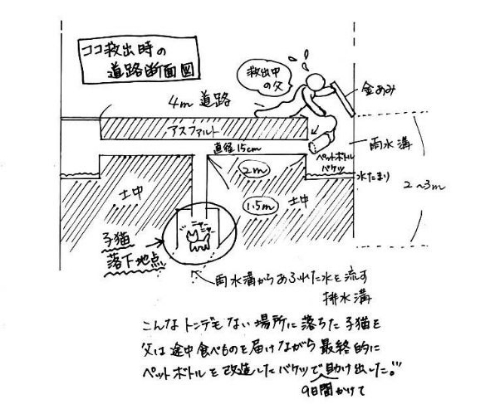 ココ救出時の
道路断面図
救出中
の父
金あみ
4m 道路
アスファルト
直径15cm
ペットボトル
バケツ
雨水溝
水たまり
2m
2~3m
土中
1.5m
土中
ニャー
ニャー
子猫
落下地点
雨水溝からあふれた水を流す
排水溝
こんなトンデモない場所に落ちた子猫を
父は途中食べものを届けながら最終的に
ペットボトルを改造したバケツで助け出した。
9日間かけて